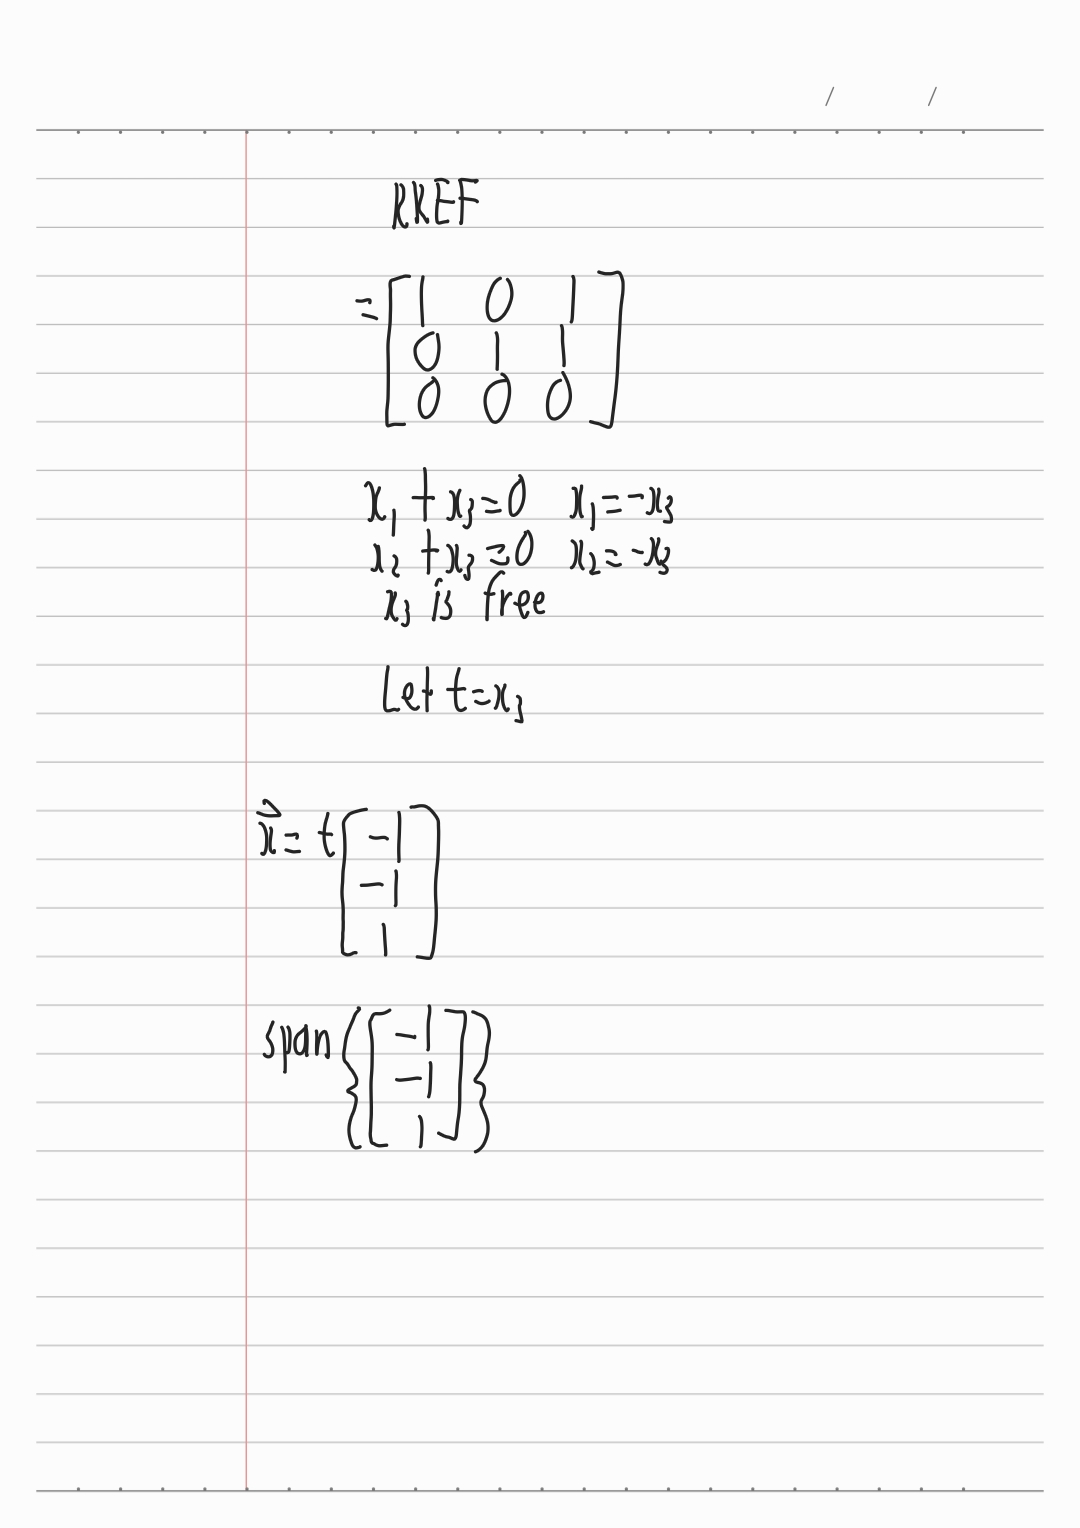 / /
RREF
= [ 1 0 1
0 1 1
0 0 0 ]
x₁ + x₃ = 0 x₁ = -x₃
x₂ + x₃ = 0 x₂ = -x₃
x₃ is free
Let t = x₃
x⃗ = t [ -1
-1
1 ]
span { [ -1
-1
1 ] }